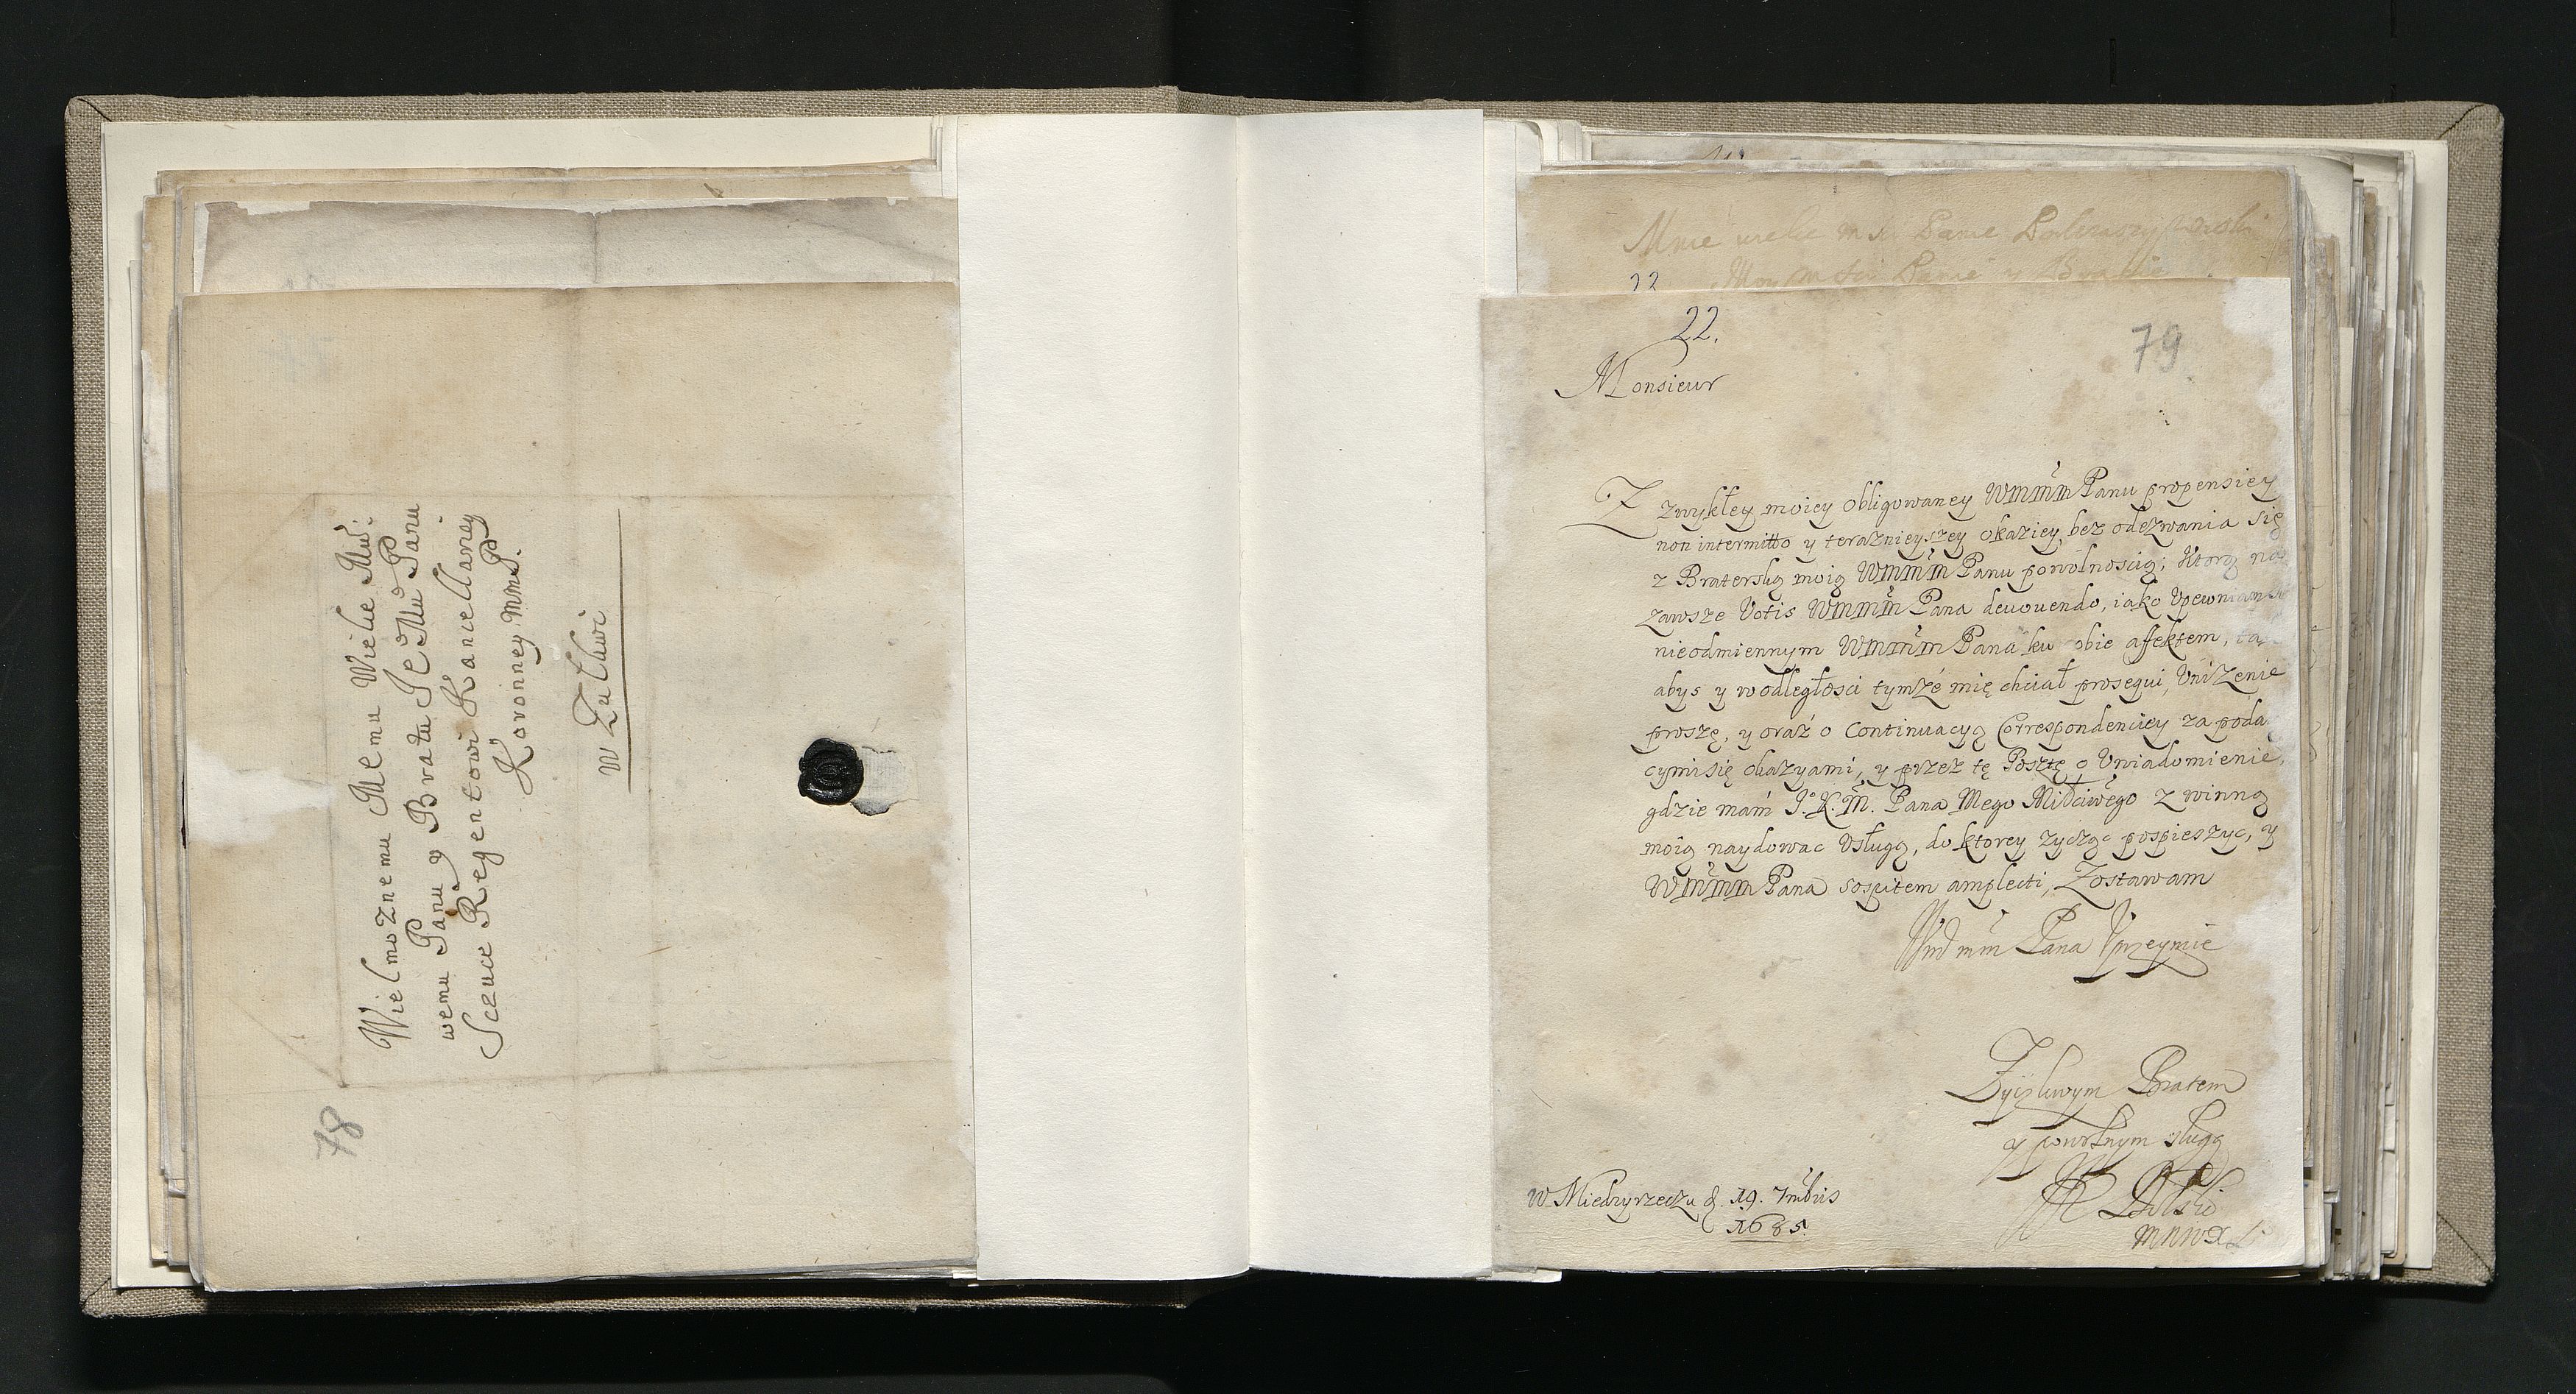 Wielmoznemu Memu Wielce Mił:
wemu Panu y Bratu Je Mu Panu
Sczuce Regentowi Kancellariey
Koronney MmP.
W Zulkwi
78
Mnie wielce m Panie
Panie y Bracie
22
22.
79
Monsieur
Z zwykłey moiey obligowaney WMMM Panu propensiey
non intermitto y teraznieyszey okaziey, bez odezwania się
z Braterską moią WMMM Panu powolnoscią; Ktorą na
zawsze Votis WMMM Pana deuouendo, iako Vpewniam
nieodmiennym WMMM Pana ku obie affektem, ta
abys y w odległosci tymże mię chciał prosequi, Vniżenie
proszę, y oraz o Continuacyą Correspondenciey za poda
cymi się okazyami, y przez tę Posztę o Vwiadomienie,
gdzie mam J.K.M. Pana Mego Miłciwego z winną
moią naydowac Vsługą, do ktorey zycząc pospieszyc, y
WMMM Pana sospitem amplecti, Zostawam
Wmm mm Pana Vprzeymie
Zyczliwym Bratem
y powolnym sługą
W Miedzyrzeczu d. 19. 7mbris
1685.